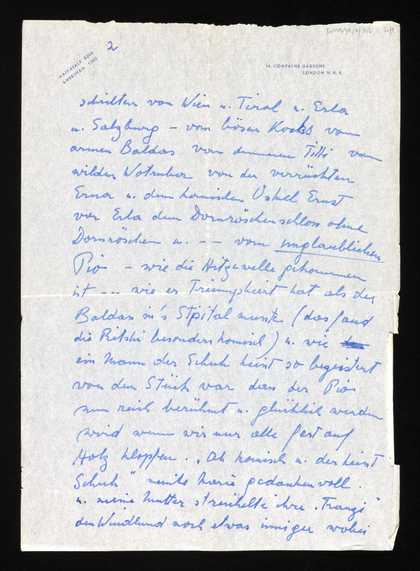 2
MAIDA VALE 6204
14, COMPAYNE GARDENS
LONDON N.W.6
schichten von Wien u. Tirol u. Erla
u. Salzburg – vom bösen Kochs vom
armen Baldas von Tilli vom
wilden Wotruba von der verrückten
Erna u. dem komischen Onkel Ernst
von Erla dem Dornröschenschloss ohne
Dornröschen u. -- vom unglaublichen
Pio – wie die Hitzewelle gekommen
ist -- wie er Triumphiert hat als der
Baldas in's Spital musste (das fand
die besonders komisch) u. wie
ein Mann der Schuh heisst so begeistert
von dem Stück war dass der Pio
nun reich berühmt u. glücklich werden
wird wenn wir nur alle fest auf
Holz klopfen.. „Oh komisch u. der heisst
Schuh" meinte Marie gedankenvoll.
u. meine Mutter streichelte ihre „Franzi"
den Windhund noch etwas inniger wobei